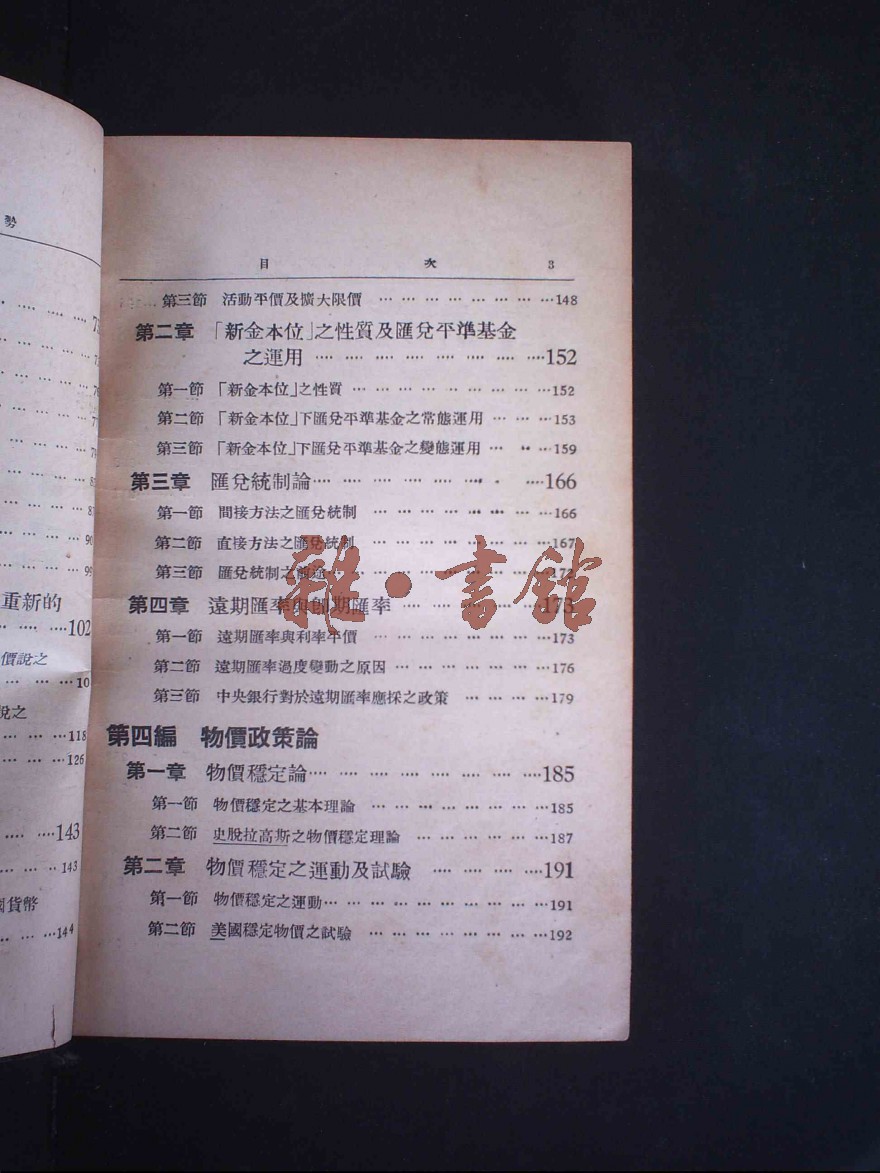 勢
重新的
102
價說之
10
說之
118
126
143
143
國貨幣
144
目 次 3
第三節 活動平價及擴大限價 … … … … … … … …148
第二章 「新金本位」之性質及匯兌平準基金
之運用 … … … … … … … …152
第一節 「新金本位」之性質 … … … … … … … …152
第二節 「新金本位」下匯兌平準基金之常態運用 … … …153
第三節 「新金本位」下匯兌平準基金之變態運用 … … …159
第三章 匯兌統制論… … … … … … … …166
第一節 間接方法之匯兌統制 … … … … … … … …166
第二節 直接方法之匯兌統制 … … … … … … … …167
第三節 匯兌統制之前途… … … … … … … …172
第四章 遠期匯率與即期匯率 … … … … … …173
第一節 遠期匯率與利率平價 … … … … … … … …173
第二節 遠期匯率過度變動之原因 … … … … … … …176
第三節 中央銀行對於遠期匯率應採之政策 … … … …179
第四編 物價政策論
第一章 物價穩定論… … … … … … … …185
第一節 物價穩定之基本理論 … … … … … … … …185
第二節 史脫拉高斯之物價穩定理論 … … … … … …187
第二章 物價穩定之運動及試驗 … … … … …191
第一節 物價穩定之運動… … … … … … … … … …191
第二節 美國穩定物價之試驗 … … … … … … … …192
雜·書館